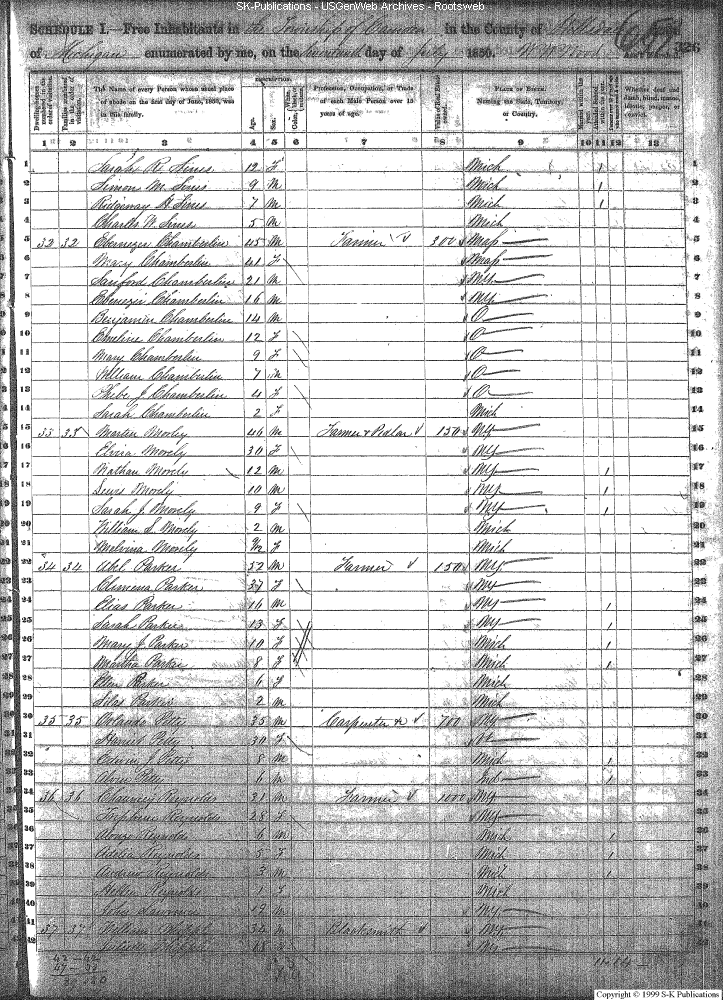 SK-Publications - USGenWeb Archives - Rootsweb
SCHEDULE I.—Free Inhabitants in the Township of Camden in the County of Hillsdale
of Michigan enumerated by me, on the day of July 1850. 326
Dwelling-houses numbered in the order of visitation. Families numbered in the order of visitation. The Name of every Person whose usual place of abode on the first day of June, 1850, was in this family. DESCRIPTION. Age. Sex. White, black, or mulatto. Profession, Occupation, or Trade of each Male Person over 15 years of age. Value of Real Estate owned. PLACE OF BIRTH. Naming the State, Territory, or Country. Married within the year. Attended School within the year. Whether deaf and dumb, blind, insane, idiotic, pauper, or convict.
1 2 3 4 5 6 7 8 9 10 11 12 13
1 Sarah R. Sines 12 F Mich 1 1
2 Simons M. Sines 9 M Mich 1 2
3 Ridgeway H. Sines 7 M Mich 1 3
4 Charles W. Sines 5 M Mich 4
5 32 32 Ebenezer Chamberlin 45 M Farmer 200 Mass 5
6 Mary Chamberlin 41 F Mass 6
7 Sanford Chamberlin 21 M NY 7
8 Ebenezer Chamberlin 16 M NY 8
9 Benjamin Chamberlin 14 M O 9
10 Emeline Chamberlin 12 F O 10
11 Mary Chamberlin 9 F O 11
12 William Chamberlin 7 M O 12
13 Phebe J Chamberlin 4 F O 13
14 Sarah Chamberlin 2 F Mich 14
15 33 33 Martin Morely 46 M Farmer & Pedlar 150 NY 15
16 Elvira Morely 30 F NY 16
17 Nathan Morely 12 M NY 1 17
18 Lewis Morely 10 M NY 1 18
19 Sarah J. Morely 9 F NY 1 19
20 William S. Morely 2 M Mich 20
21 Melvina Morely F Mich 21
22 34 34 Abel Parker 52 M Farmer 150 NY 22
23 Climena Parker 37 F NY 23
24 Elias Parker 16 M NY 1 24
25 Sarah Parker 13 F NY 1 25
26 Mary J. Parker 10 F Mich 1 26
27 Martha Parker 8 F Mich 1 27
28 Ellen Parker 6 F Mich 28
29 Silas Parker 2 M Mich 29
30 35 35 Orlando Petty 35 M Carpenter 700 NY 30
31 Harriet Petty 30 F Vt 31
32 Edwin J Petty 8 M Mich 1 32
33 Petty 6 M Ind 1 33
34 36 36 Chauncey Reynolds 31 M Farmer 1000 NY 34
35 Reynolds 28 F NY 35
36 Alonzo Reynolds 6 M Mich 1 36
37 Reynolds 5 F Mich 1 37
38 Andrew Reynolds 3 M Mich 1 38
39 Reynolds 1 F Mich 39
40 John 17 M NY 40
41 37 37 William 34 M Blacksmith NY 41
42 18 F NY 42
Copyright © 1999 S-K Publications